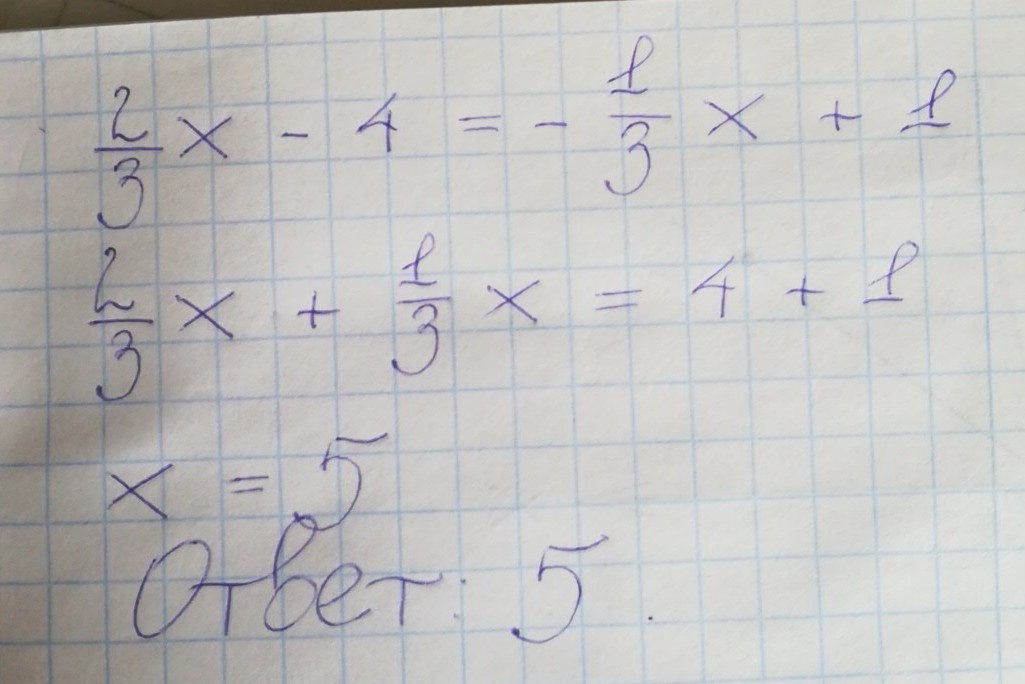 2/3 x - 4 = - 1/3 x + 1
2/3 x + 1/3 x = 4 + 1
x = 5
Ответ: 5.